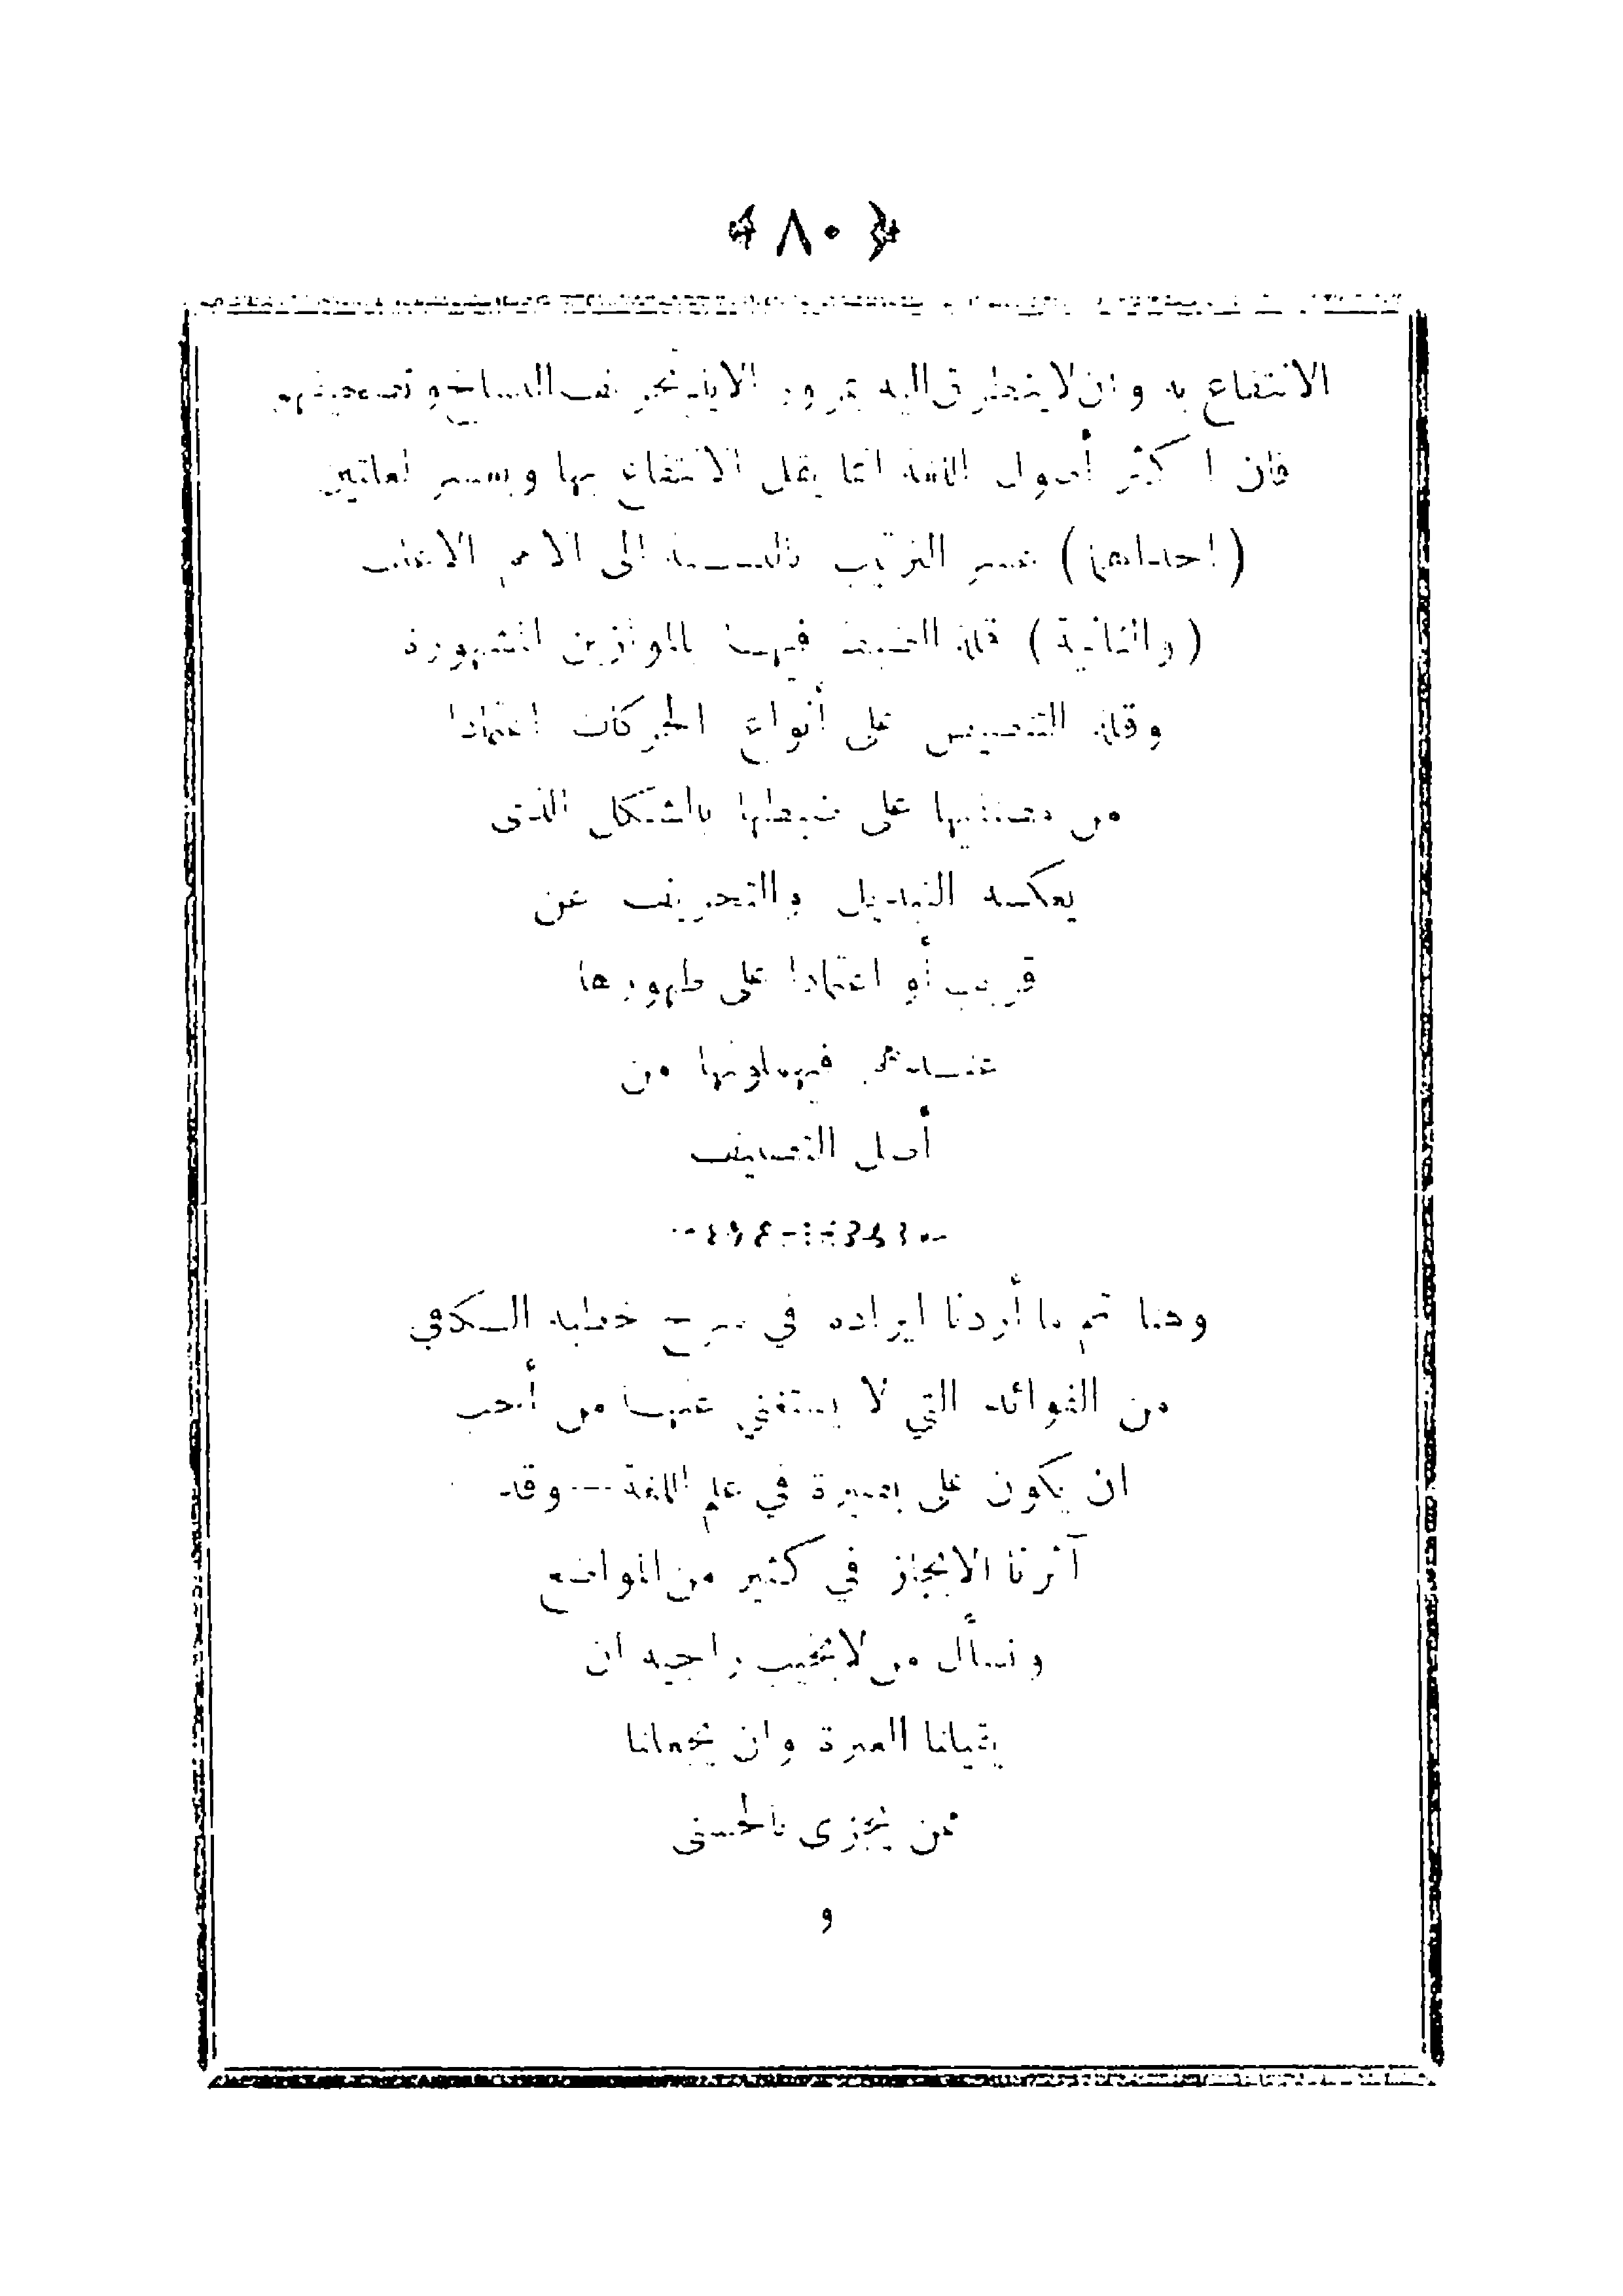 ﴿ ٨٠ ﴾
الانتفاع به وان لا يتطرق اليه بمرور الايام تحريف النساخ وتصحيفهم
فان اكثر أصول اللغة انما يقل الانتفاع بها ويعسر لعلتين
(احداهما) عسر الترتيب بالنسبة الى الاعم الاغلب
(والثانية) قلة الضبط فيها بالموازين المشهورة
وقلة التنصيص على أنواع الحركات اعتمادا
من مصنفيها على ضبطها بالشكل الذى
يعكسه التبديل والتحريف عن
قريب أو اعتمادا على ظهورها
عندهم فيهملونها من
أصل التصنيف
وهنا تم ما أردنا ايراده في شرح خطبة الكافي
من الفوائد التي لا يستغني عنها من أحب
ان يكون على بصيرة في علم اللغة — وقد
آثرنا الايجاز في كثير من المواضع
ونسأل من لا يخيب راجيه ان
يقيلنا العثرة وان يجعلنا
ممن يجزى بالحسنى
و